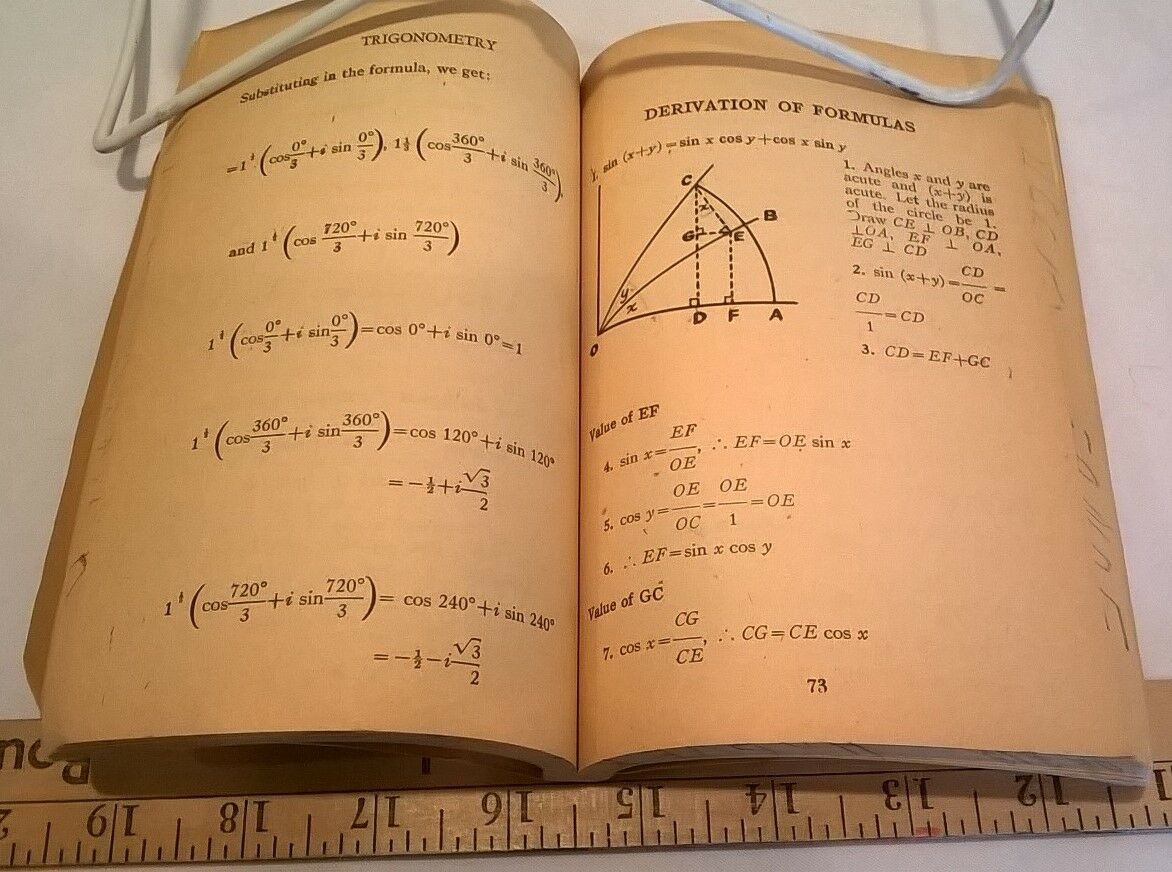 TRIGONOMETRY
Substituting in the formula, we get:
=1^⅓(cos 0°/3 + i sin 0°/3), 1⅓(cos 360°/3 + i sin 360°/3),
and 1^⅓(cos 720°/3 + i sin 720°/3)
1^⅓(cos 0°/3 + i sin 0°/3)=cos 0°+i sin 0°=1
1^⅓(cos 360°/3 + i sin 360°/3)=cos 120°+i sin 120°
=-½+i√3/2
1^⅓(cos 720°/3 + i sin 720°/3)= cos 240°+i sin 240°
=-½-i√3/2
DERIVATION OF FORMULAS
1. sin (x+y)=sin x cos y+cos x sin y
C
x
B
G
E
y
x
O
D F A
1. Angles x and y are
acute and (x+y) is
acute. Let the radius
of the circle be 1.
Draw CE ⊥ OB, CD
⊥OA, EF ⊥ OA,
EG ⊥ CD
2. sin (x+y)=CD/OC=
CD/1=CD
3. CD=EF+GC
Value of EF
4. sin x=EF/OE, ∴ EF=OE sin x
5. cos y=OE/OC=OE/1=OE
6. ∴ EF=sin x cos y
Value of GC
7. cos x=CG/CE, ∴ CG=CE cos x
73
19 18 17 16 15 14 13 12